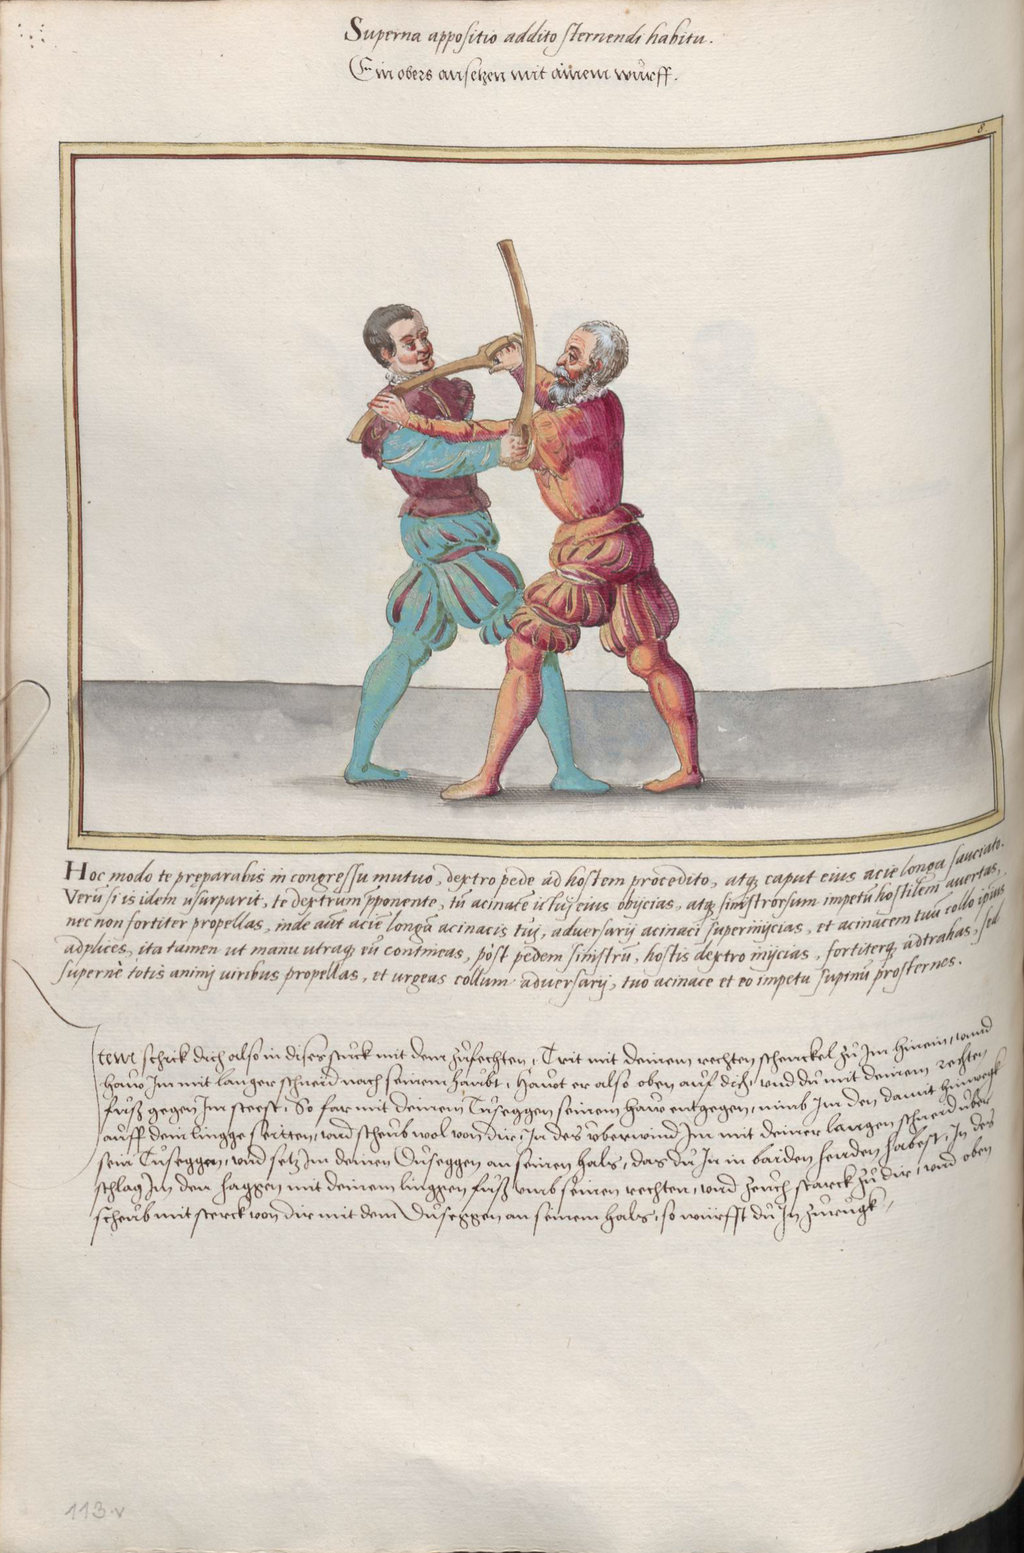 Superna appositio addito sternendi habitu.
Ein obers ansetzen mit ainem wurff.
8
Hoc modo te pręparabis in congressu mutuo, dextro pede ad hostem procedito, atq, caput eius acie longa sauciato.
Verũ si is idem usurparit, te dextrum pponente, tú acinace ictuj eius obijcias, atq, sinistrorsum impetú hostilem avertas,
nec non fortiter propellas, inde aút acie longa acinacis tuj, adversarij acinaci superinijcias, et acinacem tuú collo ipsius
adplices, ita tamen ut manu utraq, eú contineas, póst pedem sinistrú, hostis dextro inijcias, fortiterq, adtrahas, sed
supernè totis animj uiribus propellas, et urgeas collum adversarij, tuo acinace et eo impetu supinú prosternes.
Item schick dich also in dises stuck mit dem zufechten, Trit mit deinem rechten schenckel zu Im hinein, unnd
haw Im mit langer schneid nach seinem haubt, Hawt er also oben auf dich, und du mit deinem rechten
fuß gegen Im steest, So far mit deinem Tuseggen seinem haw entgegen, nimb Im den damit hinwegk
auff dein lingge seitten, und scheub wol von dir, In des uberwind Im mit deiner langen schneid uber
sein Tuseggen, und setz Im deinen Duseggen an seinen hals, das du In in baiden henden habest, In des
schlag Im den haggen mit deinem linggen fuß umb seinen rechten, und zeuch starck zu dir, und oben
scheub mit sterck von dir mit dem Duseggen an seinem hals, so wurffst du In zurugk
113.v